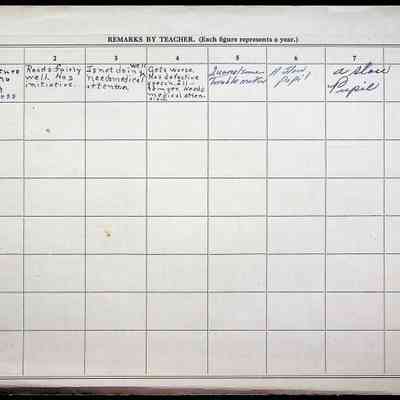 REMARKS BY TEACHER. (Each figure represents a year.)
2 3 4 5 6 7
Reads fairly
well. Has
initiative.
Is not doing well
needs medical
attention
Gets worse.
Has defective
speech. Ill-
Needs
medical atten-
Quarrelsome
Trouble maker
A Slow
Pupil
a slow
Pupil